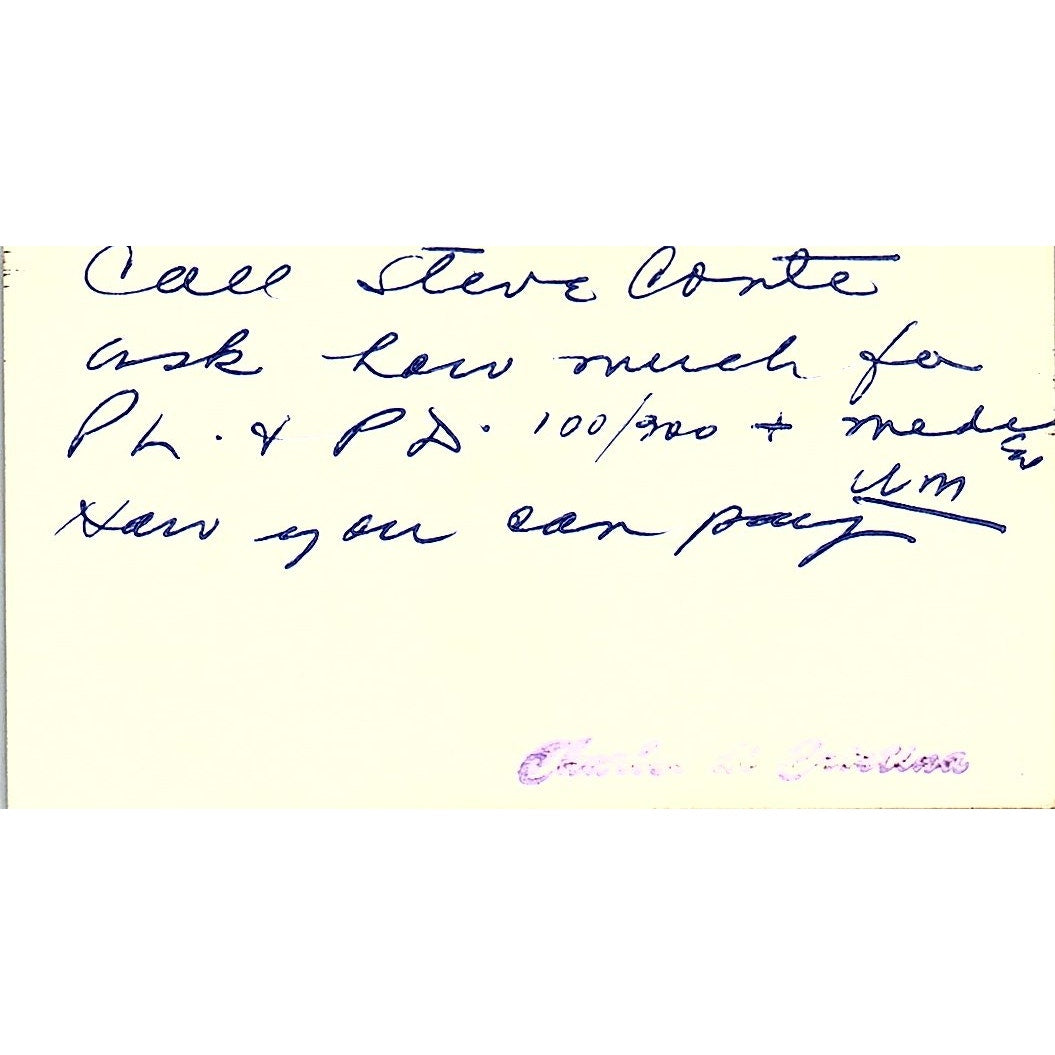 Call Steve Conte
ask how much for
PL. & PD. 100/300 + medical
UM
How you can pay
Charles